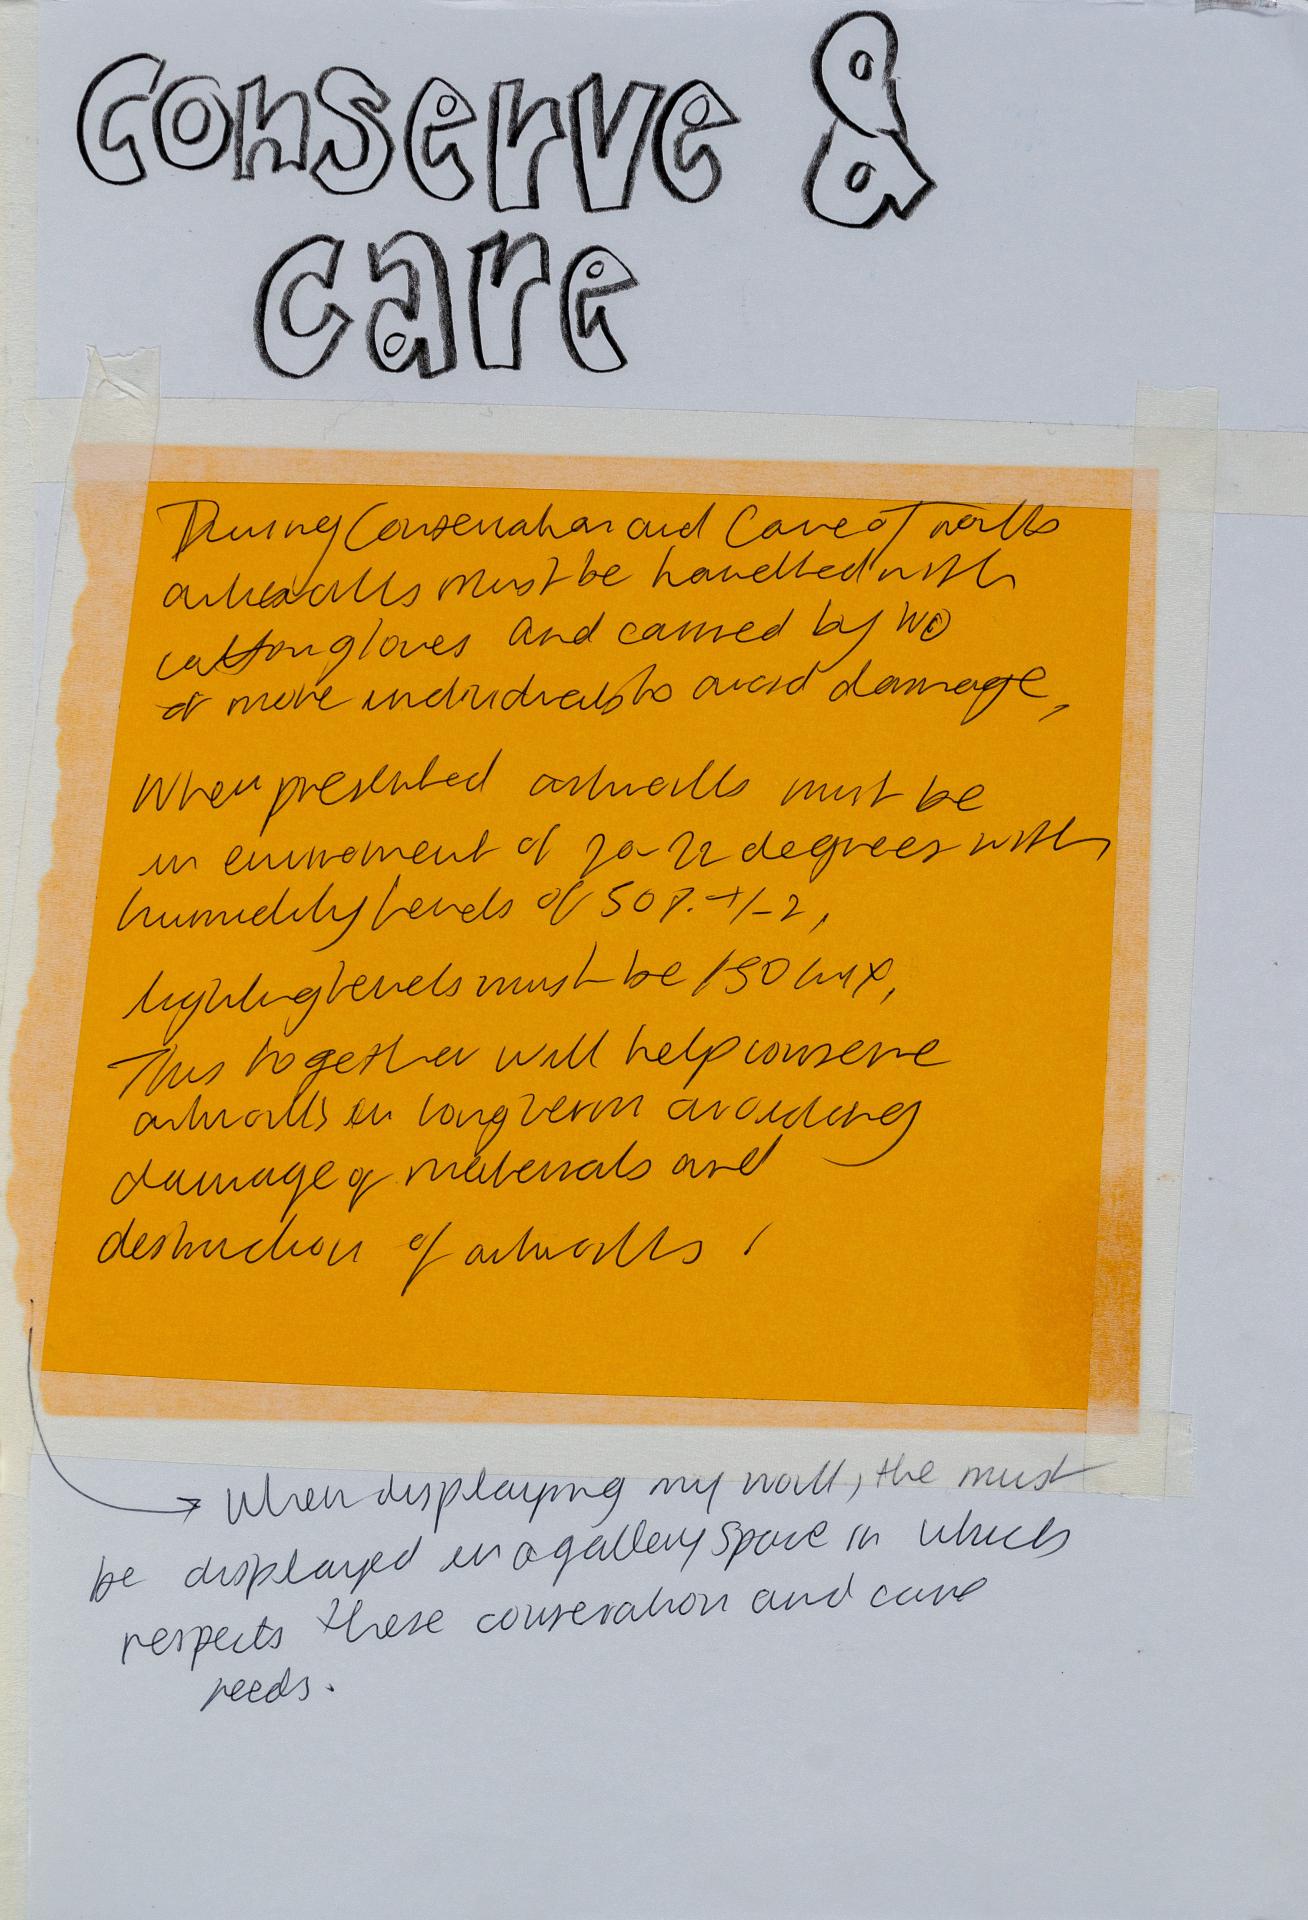 Conserve &
care
During Conservation and Care of works
artworks must be handled with
cotton gloves and carried by two
or more individuals to avoid damage,
When presented artworks must be
in enviroment of 20-22 degrees with
humidity levels of 50% +/-2,
lighting levels must be 150 lux,
This together will help conserve
artworks in long term avoiding
damage of materials and
destruction of artworks.
→ When displaying my work, the must
be displayed in a gallery space in which
respects these conservation and care
needs.